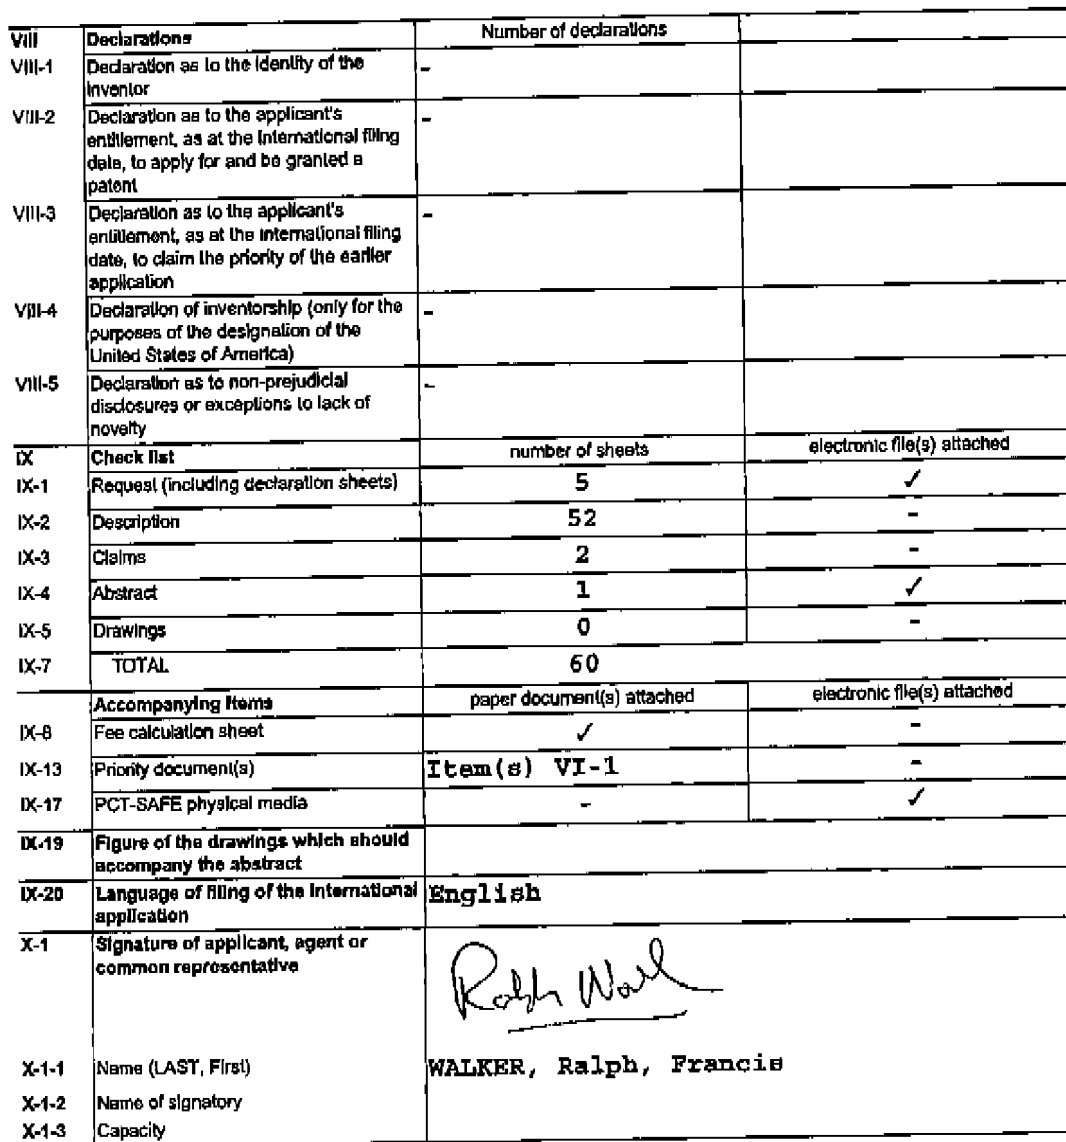 VIII Declarations Number of declarations
VIII-1 Declaration as to the identity of the -
inventor
VIII-2 Declaration as to the applicant's -
entitlement, as at the international filing
date, to apply for and be granted a
patent
VIII-3 Declaration as to the applicant's -
entitlement, as at the international filing
date, to claim the priority of the earlier
application
VIII-4 Declaration of inventorship (only for the -
purposes of the designation of the
United States of America)
VIII-5 Declaration as to non-prejudicial -
disclosures or exceptions to lack of
novelty
IX Check list number of sheets electronic file(s) attached
IX-1 Request (including declaration sheets) 5 ✓
IX-2 Description 52 -
IX-3 Claims 2 -
IX-4 Abstract 1 ✓
IX-5 Drawings 0 -
IX-7 TOTAL 60
Accompanying Items paper document(s) attached electronic file(s) attached
IX-8 Fee calculation sheet ✓ -
IX-13 Priority document(s) Item(s) VI-1 -
IX-17 PCT-SAFE physical media - ✓
IX-19 Figure of the drawings which should
accompany the abstract
IX-20 Language of filing of the international English
application
X-1 Signature of applicant, agent or
common representative
X-1-1 Name (LAST, First) WALKER, Ralph, Francis
X-1-2 Name of signatory
X-1-3 Capacity